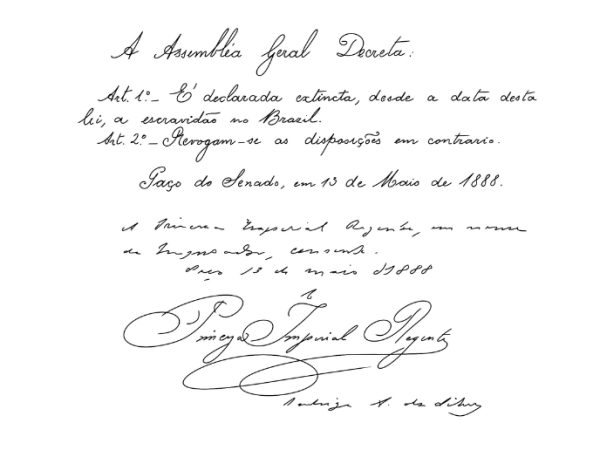 A Assembléa Geral Decreta:
Art. 1.º – É declarada extincta, desde a data desta
lei, a escravidão no Brazil.
Art. 2.º – Revogam-se as disposições em contrario.
Paço do Senado, em 13 de Maio de 1888.
A Princeza Imperial Regente, em nome
do Imperador, consente.
Paço 13 de maio d 1888
Princeza Imperial Regente
Rodrigo A. da Silva